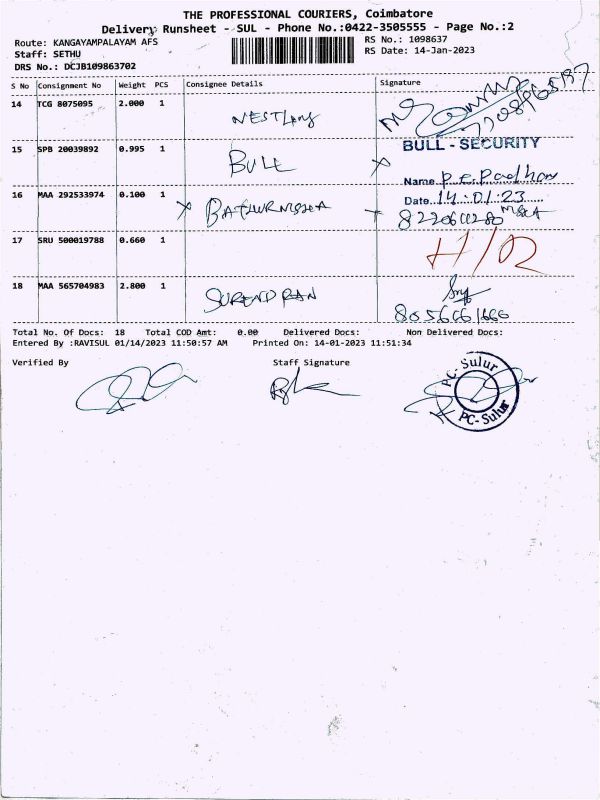 THE PROFESSIONAL COURIERS, Coimbatore
Delivery Runsheet - SUL - Phone No.:0422-3505555 - Page No.:2
Route: KANGAYAMPALAYAM AFS
RS No.: 1098637
Staff: SETHU
RS Date: 14-Jan-2023
DRS No.: DCJB109863702
S No Consignment No Weight PCS Consignee Details Signature
14 TCG 8075095 2.000 1
15 SPB 20039892 0.995 1 BULL
BULL - SECURITY
Name
Date 14.01.23
16 MAA 292533974 0.100 1
17 SRU 500019788 0.660 1
18 MAA 565704983 2.800 1 SURENDRAN
Total No. Of Docs: 18 Total COD Amt: 0.00 Delivered Docs: Non Delivered Docs:
Entered By :RAVISUL 01/14/2023 11:50:57 AM Printed On: 14-01-2023 11:51:34
Verified By Staff Signature
PC- Sulur
PC- Sulur